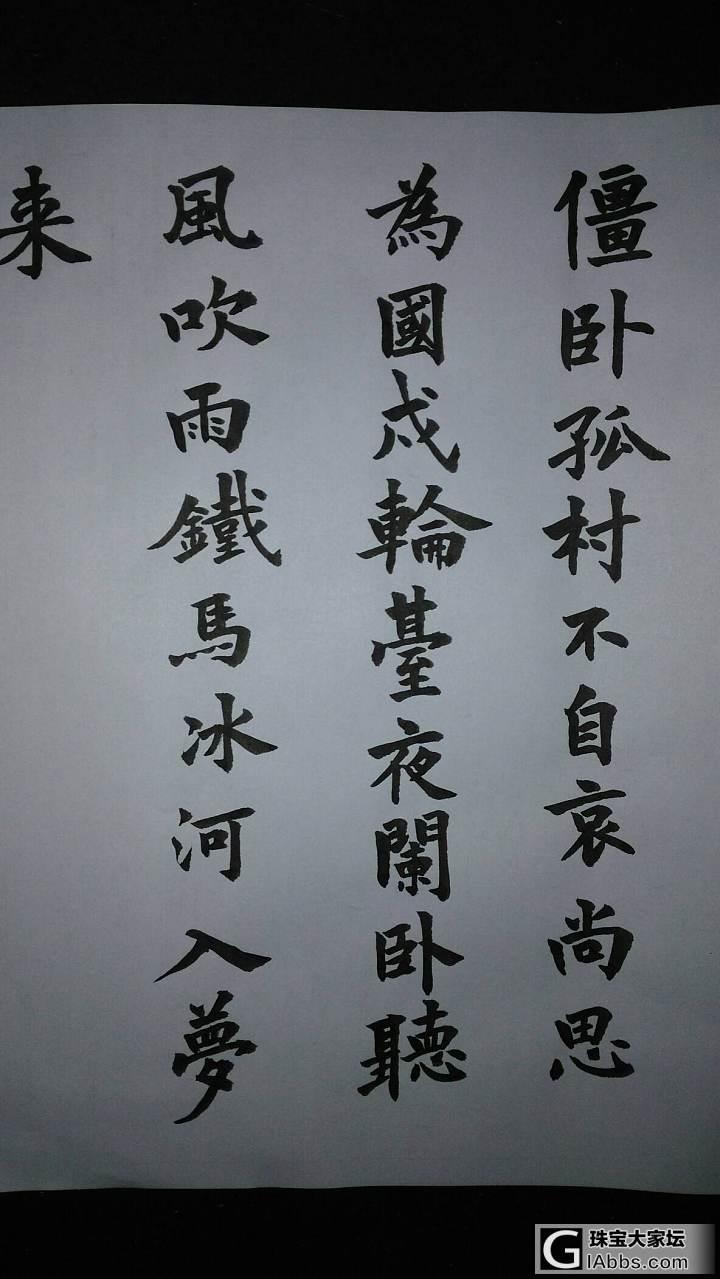 僵卧孤村不自哀尚思
為國戍輪臺夜闌卧聽
風吹雨鐵馬冰河入夢
来
珠宝大家坛
GIAbbs.com